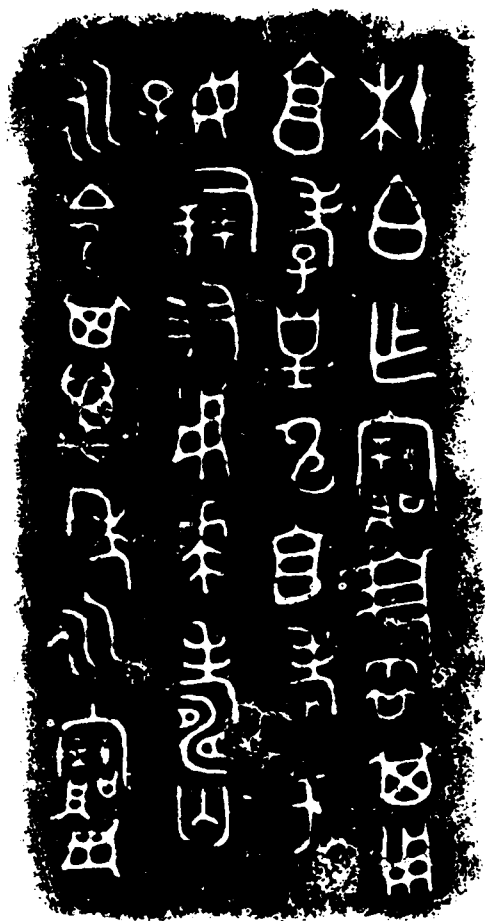 杜白乍寶盨其用
亯孝于皇申且考于
好倗友用𠦪壽匄
永令其萬年永寶用